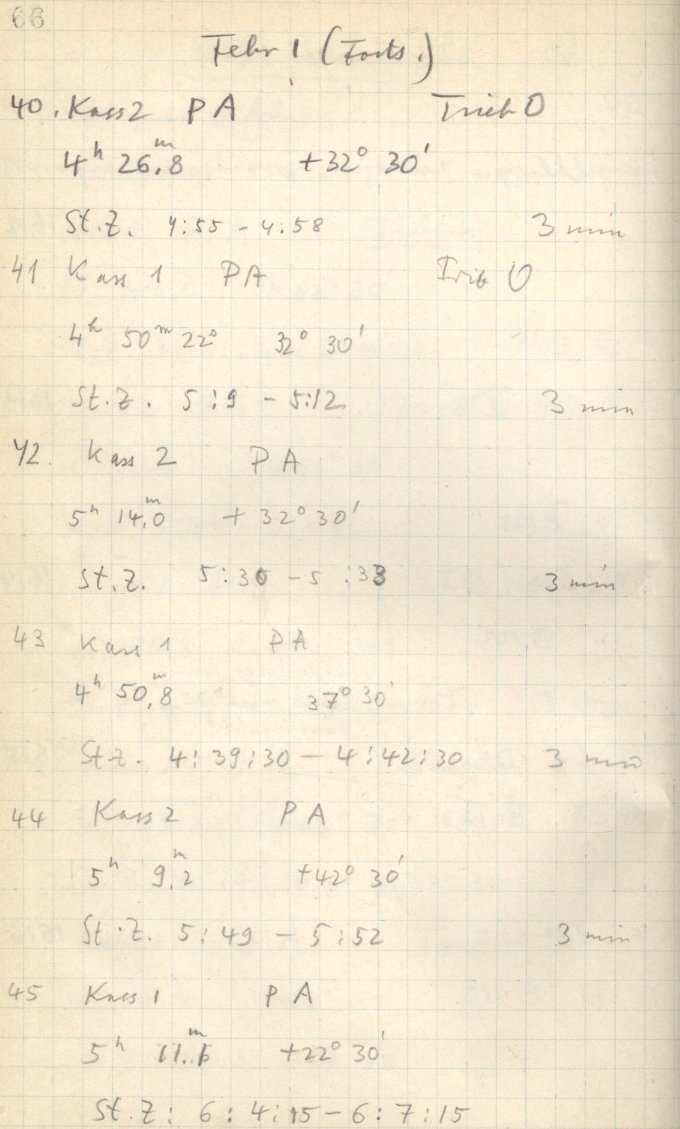 66
Febr 1 (Forts.)
40. Kass 2 PA Trieb 0
4h 26,8m +32° 30'
St.Z. 4:55 - 4:58 3 min
41 Kass 1 PA Trieb 0
4h 50m 22s 32° 30'
St.Z. 5:9 - 5:12 3 min
42. Kass 2 PA
5h 14,0m + 32° 30'
St.Z. 5:30 - 5:33 3 min
43 Kass 1 PA
4h 50,8m 37° 30'
St.Z. 4:39:30 - 4:42:30 3 min
44 Kass 2 PA
5h 9,2m +42° 30'
St.Z. 5:49 - 5:52 3 min
45 Kass 1 PA
5h m +22° 30'
St.Z: 6:4:15 - 6:7:15